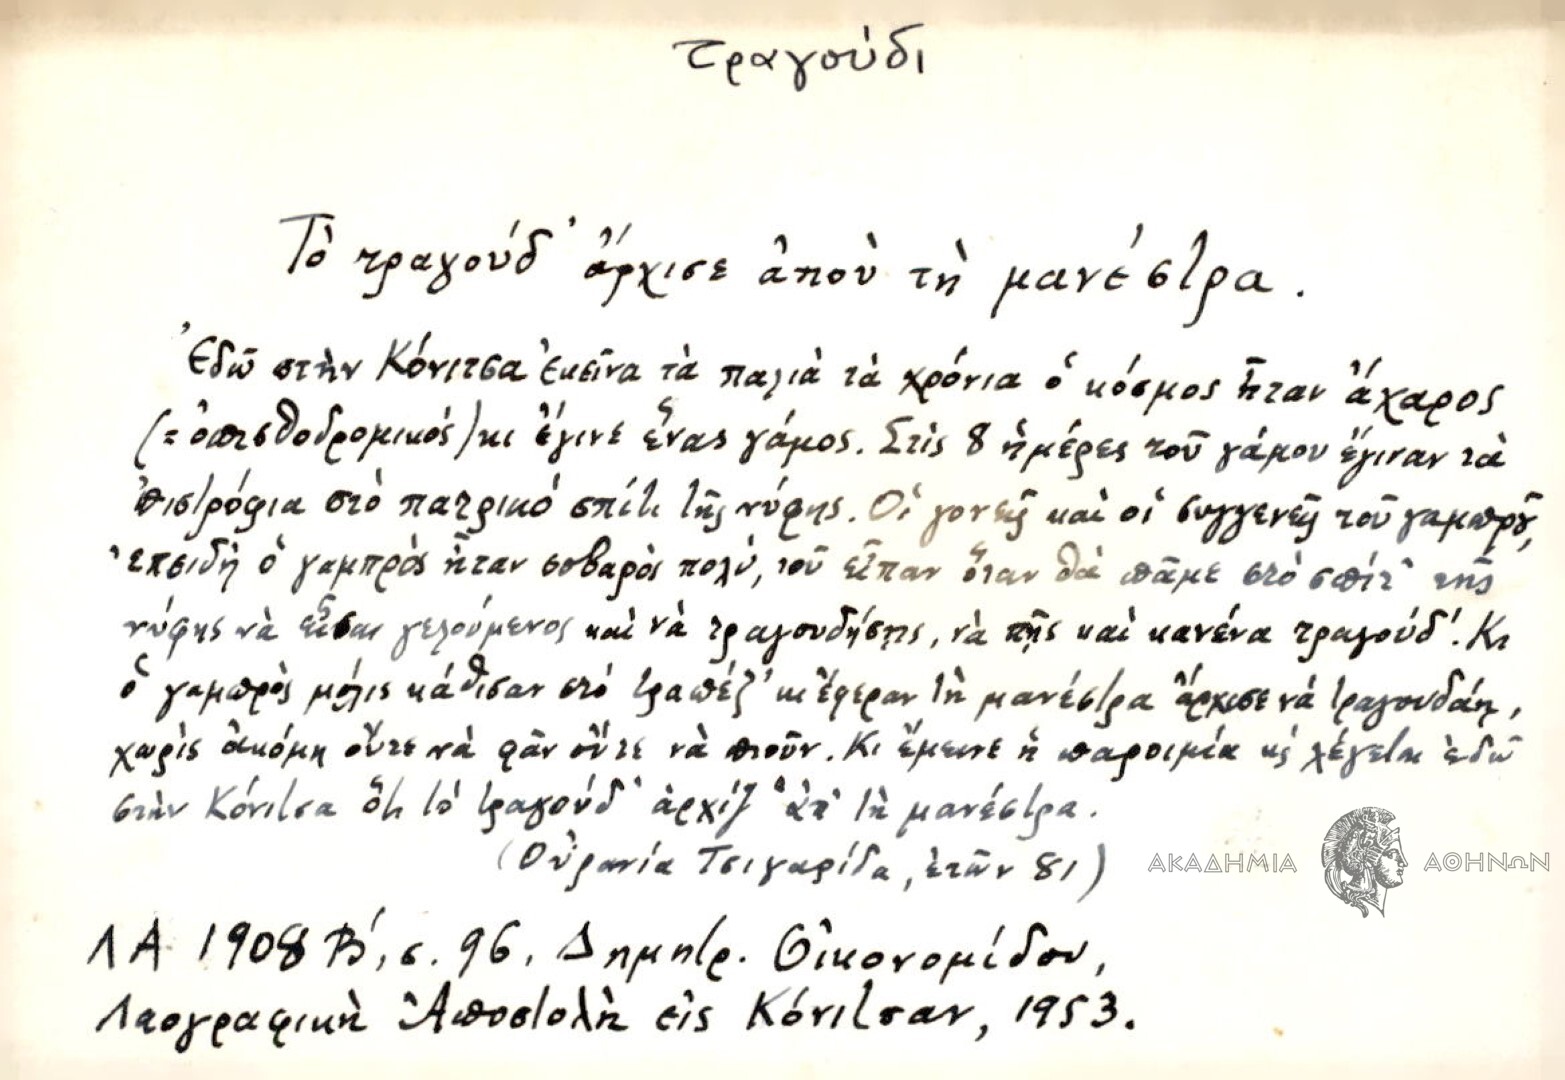 τραγούδι
Τὸ τραγούδ' ἄρχισε ἀποὺ τὴ μανέστρα.
Ἐδῶ στὴν Κόνιτσα ἐκεῖνα τὰ παλιὰ τὰ χρόνια ὁ κόσμος ἦταν ἄχαρος
(=ὀπισθοδρομικός) κι ἔγινε ἕνας γάμος. Στὶς 8 ἡμέρες τοῦ γάμου ἔγιναν τὰ
'πιστρόφια στὸ πατρικό σπίτι τῆς νύφης. Οἱ γονεῖς καὶ οἱ συγγενεῖς τοῦ γαμπροῦ,
ἐπειδὴ ὁ γαμπρὸς ἦταν σοβαρὸς πολύ, τοῦ εἶπαν ὅταν θὰ πᾶμε στὸ σπίτ' τῆς
νύφης νὰ εἶσαι γελούμενος καὶ νὰ τραγουδήσῃς, νὰ πῇς καὶ κανένα τραγούδ'. Κι
ὁ γαμπρὸς μόλις κάθισαν στὸ τραπέζ' κι ἔφεραν τὴ μανέστρα ἄρχισε νὰ τραγουδάῃ,
χωρὶς ἀκόμη οὔτε νὰ φᾶν οὔτε νὰ πιοῦν. Κι ἔμεινε ἡ παροιμία κὶ λέγεται ἐδῶ
στὴν Κόνιτσα ὅτι τὸ τραγούδ' ἀρχίζ' ἀπ' τὴ μανέστρα.
(Οὐρανία Τσιγαρίδα, ἐτῶν 81)
ΑΚΑΔΗΜΙΑ ΑΘΗΝΩΝ
ΛΑ 1908 Β', σ. 96, Δημητρ. Οἰκονομίδου,
Λαογραφικὴ Ἀποστολὴ εἰς Κόνιτσαν, 1953.